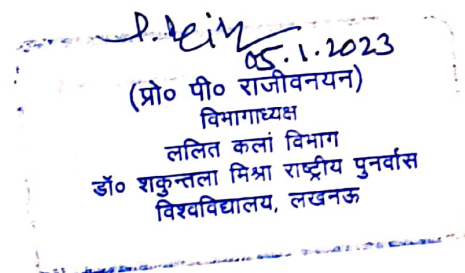 05.1.2023
(प्रो० पी० राजीवनयन)
विभागाध्यक्ष
ललित कलां विभाग
डॉ० शकुन्तला मिश्रा राष्ट्रीय पुनर्वास
विश्वविद्यालय, लखनऊ